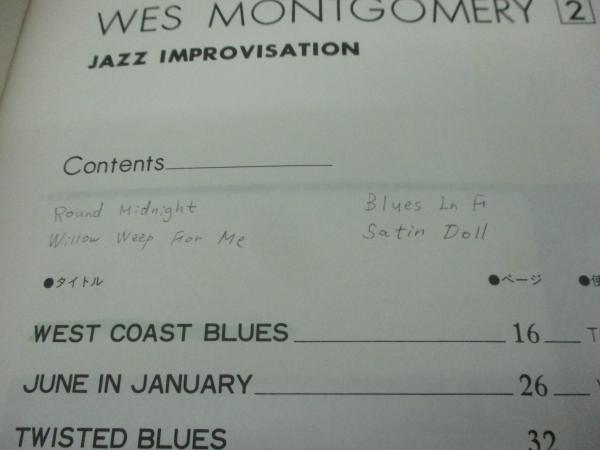 WES MONTGOMERY 2
JAZZ IMPROVISATION
Contents
Round Midnight Blues In F
Willow Weep For Me Satin Doll
●タイトル ●ページ ●使
WEST COAST BLUES 16 T
JUNE IN JANUARY 26
TWISTED BLUES 32